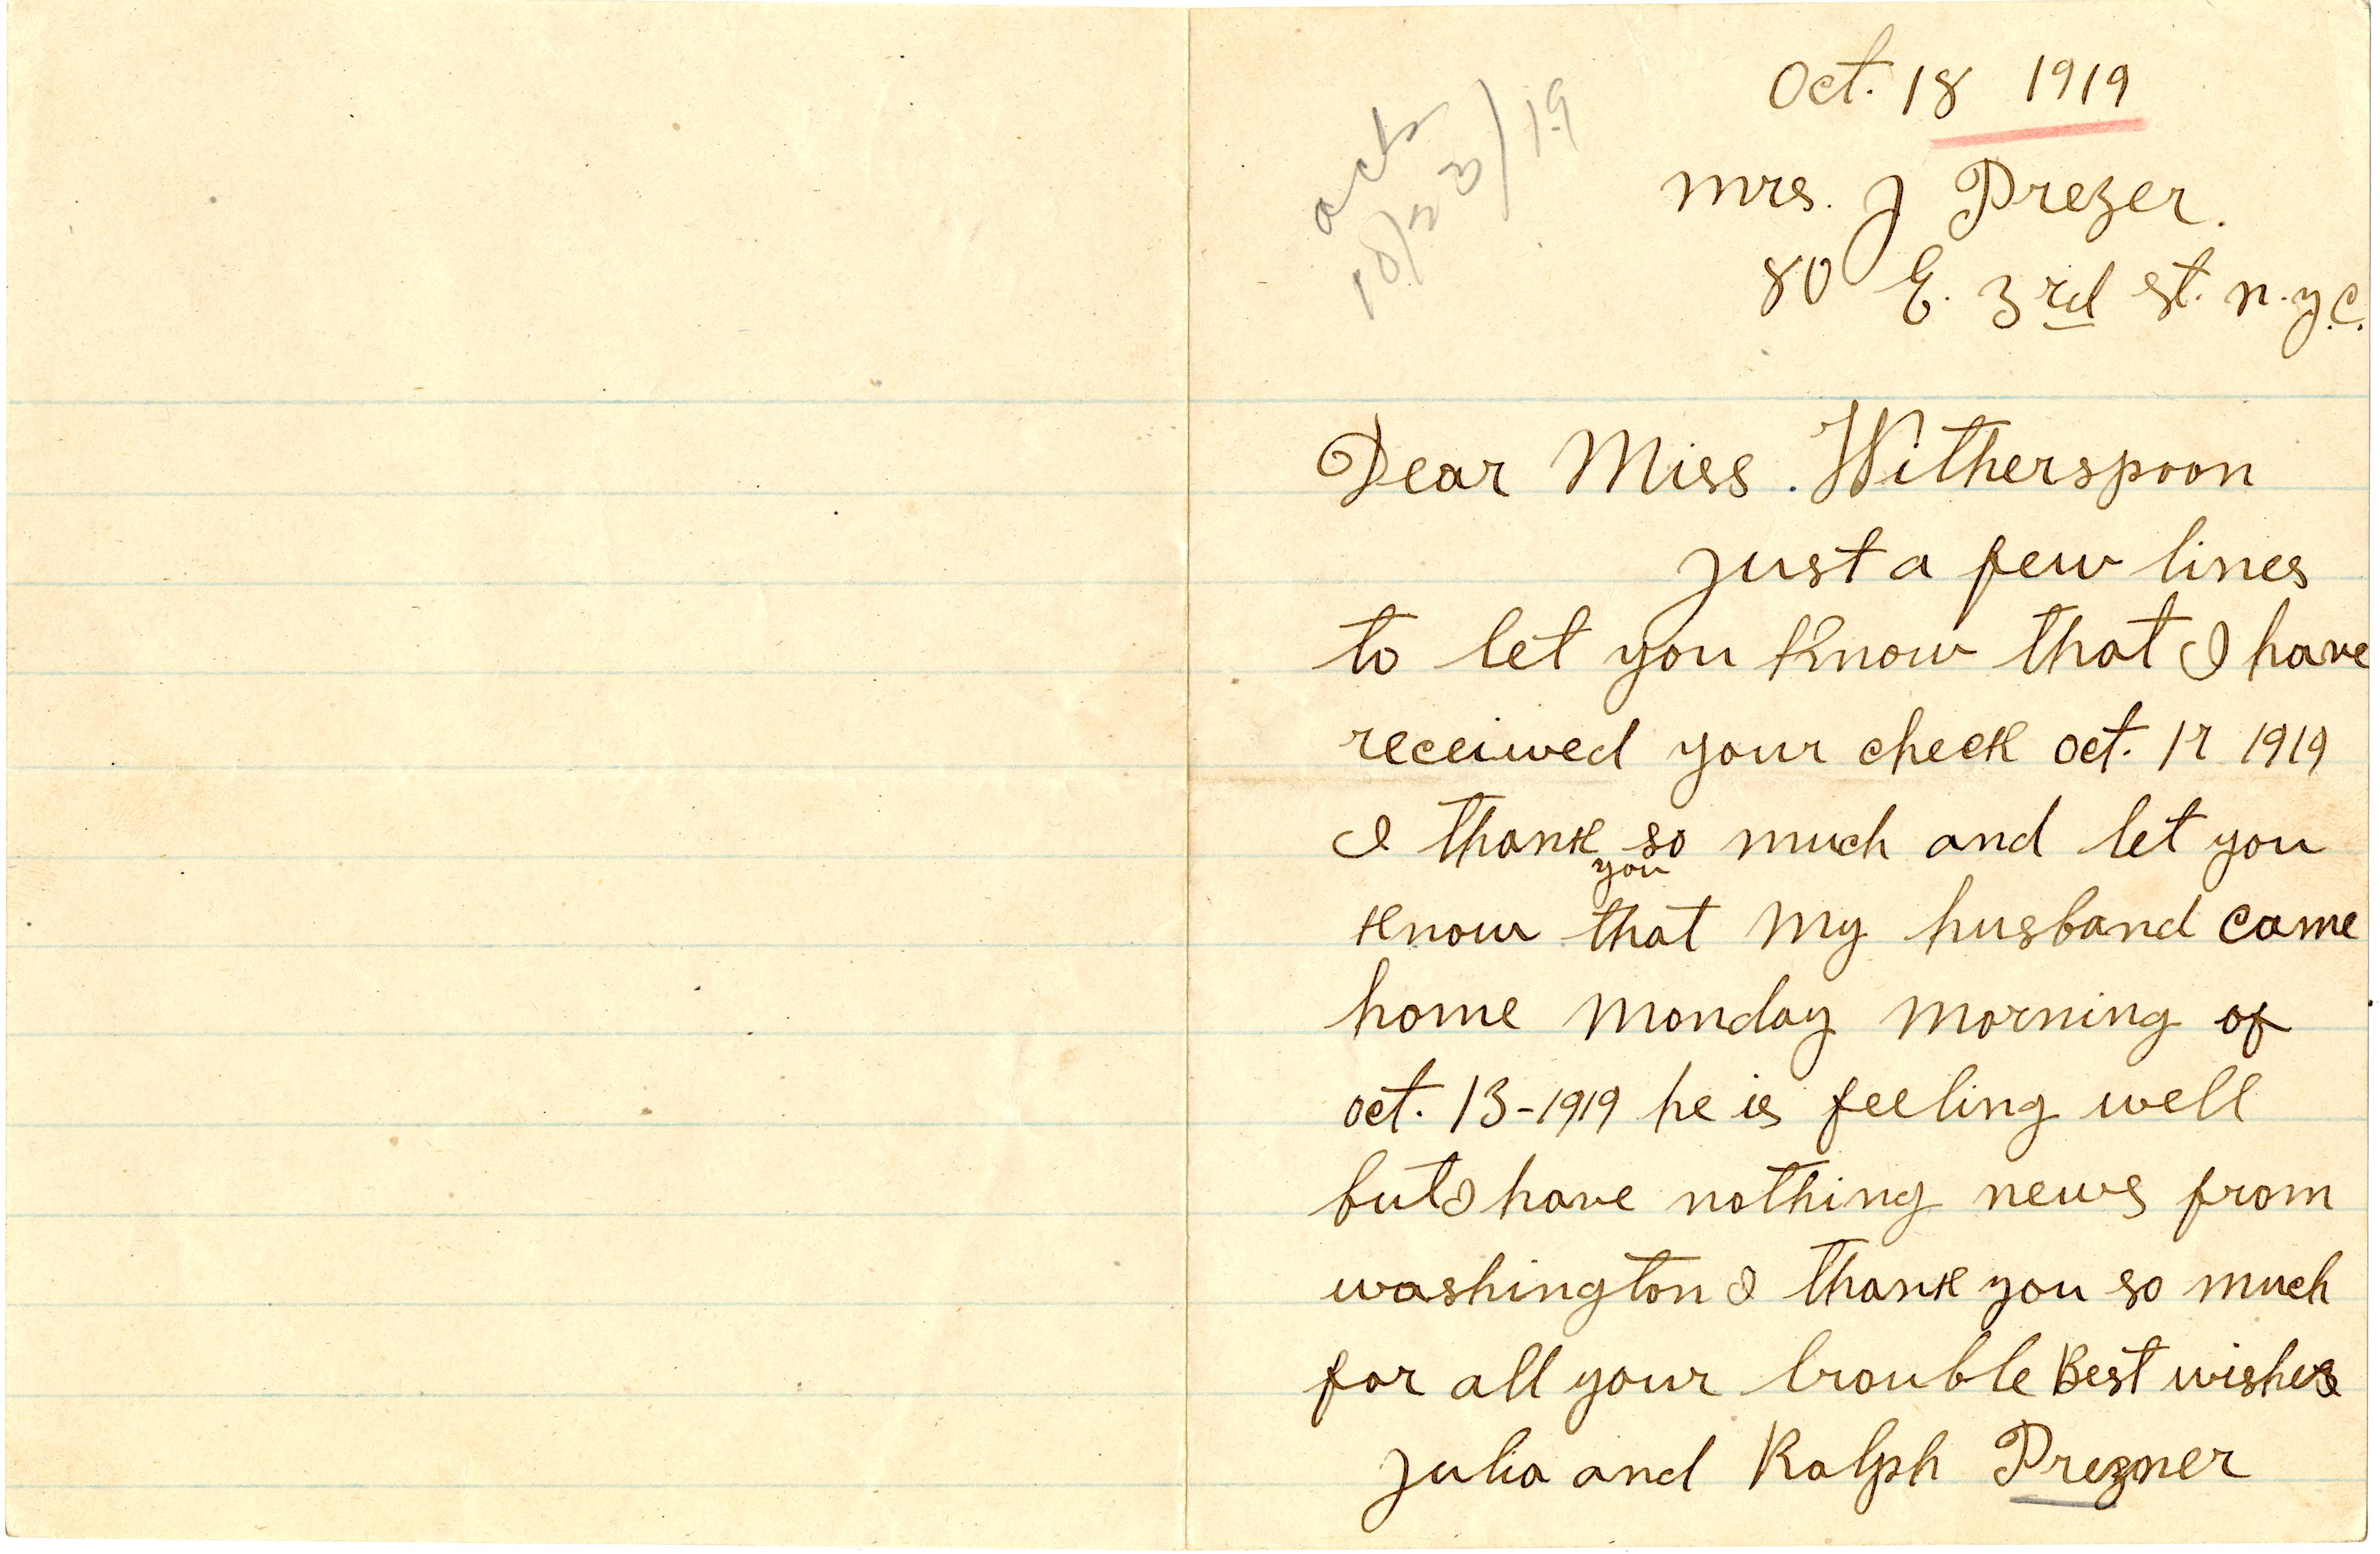 Oct. 18 1919
10/23/19
Mrs. J Prezer.
80 E. 3rd st. n.y.c.
Dear Miss. Witherspoon
just a few lines
to let you Know that I have
received your check oct. 17 1919
I thank you so much and let you
know that my husband came
home monday morning of
oct. 13-1919 he is feeling well
but I have nothing news from
washington I thank you so much
for all your trouble Best wishes
Julia and Ralph Prezner